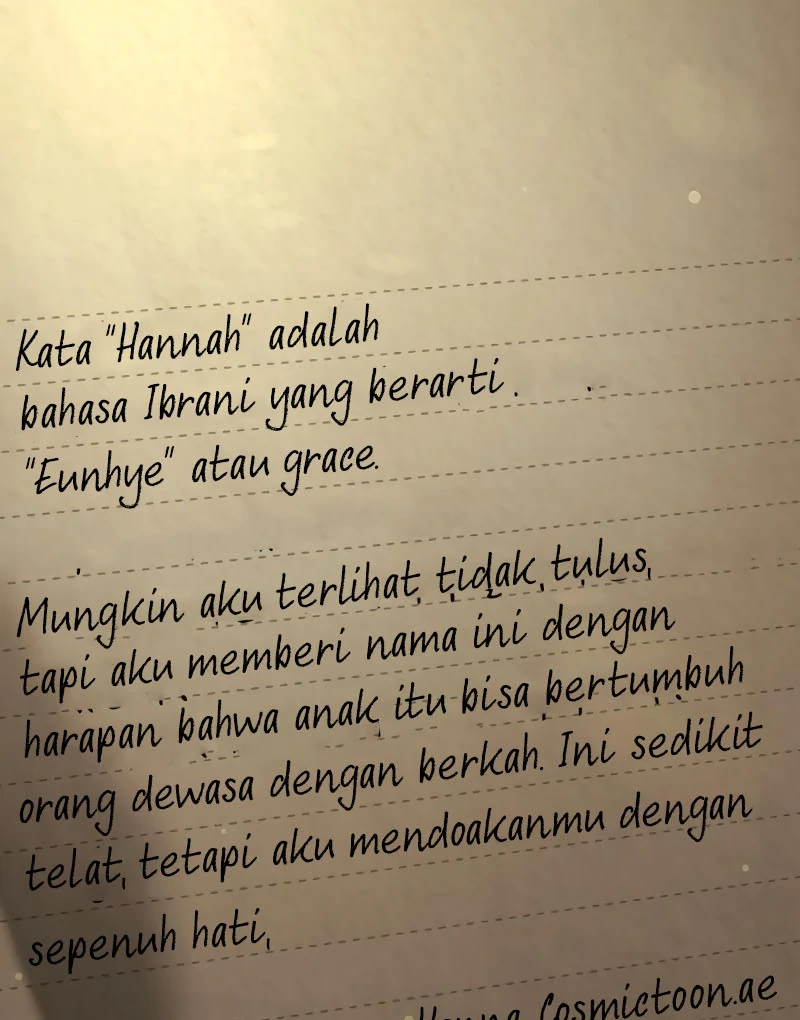 Kata "Hannah" adalah
bahasa Ibrani yang berarti.
"Eunhye" atau grace.
Mungkin aku terlihat tidak tulus,
tapi aku memberi nama ini dengan
harapan bahwa anak itu bisa bertumbuh
orang dewasa dengan berkah. Ini sedikit
telat, tetapi aku mendoakanmu dengan
sepenuh hati,
Cosmictoon.ae